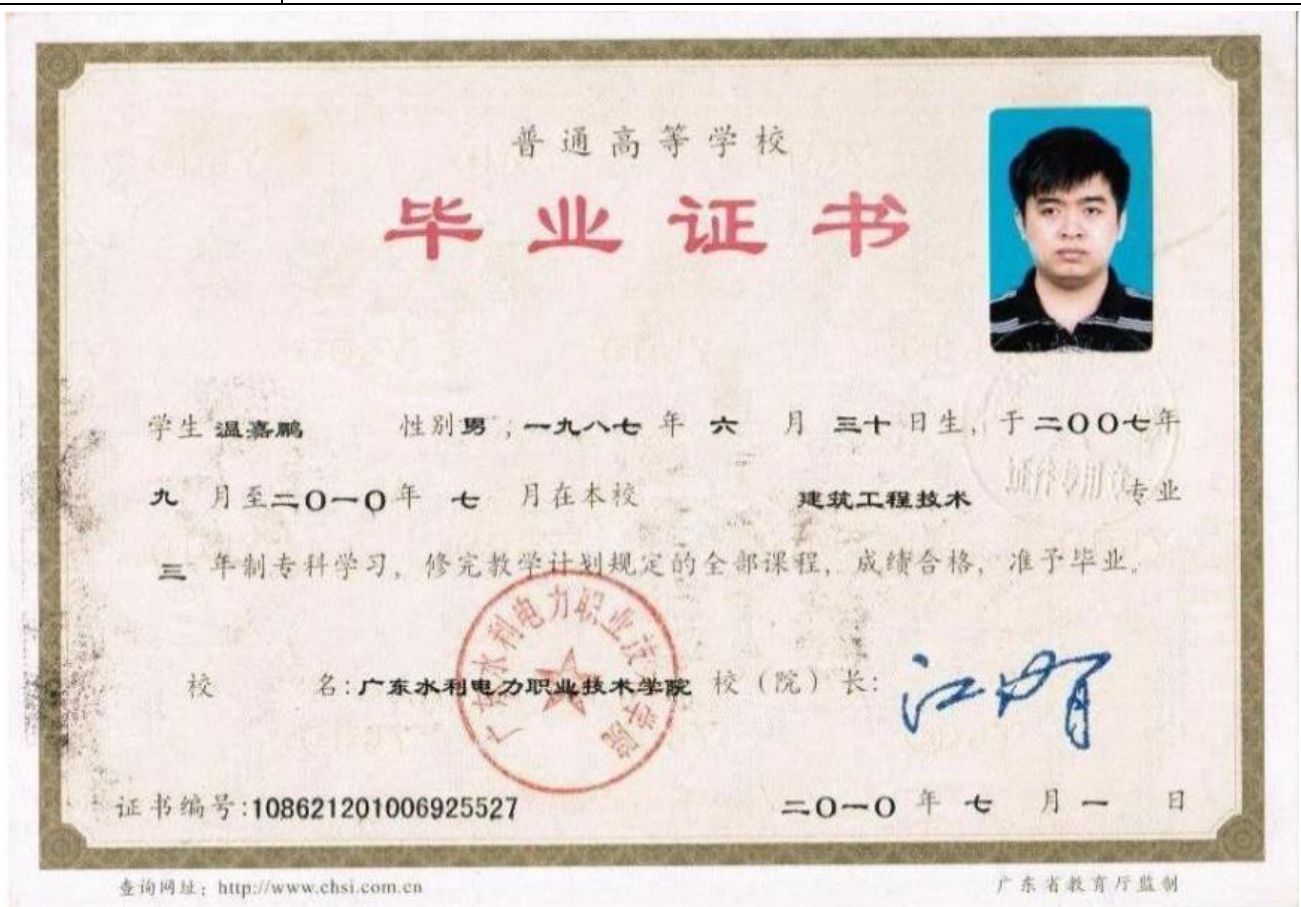 普通高等学校
毕业证书
学生 温嘉鹏 性别 男 , 一九八七 年 六 月 三十 日生, 于 二〇〇七 年
九 月至 二〇一〇 年 七 月在本校 建筑工程技术 专业
三 年制专科学习, 修完教学计划规定的全部课程, 成绩合格, 准予毕业。
校 名: 广东水利电力职业技术学院 校（院）长:
广东水利电力职业技术学院
证书编号:108621201006925527 二〇一〇 年 七 月 一 日
查询网址: http://www.chsi.com.cn 广东省教育厅监制